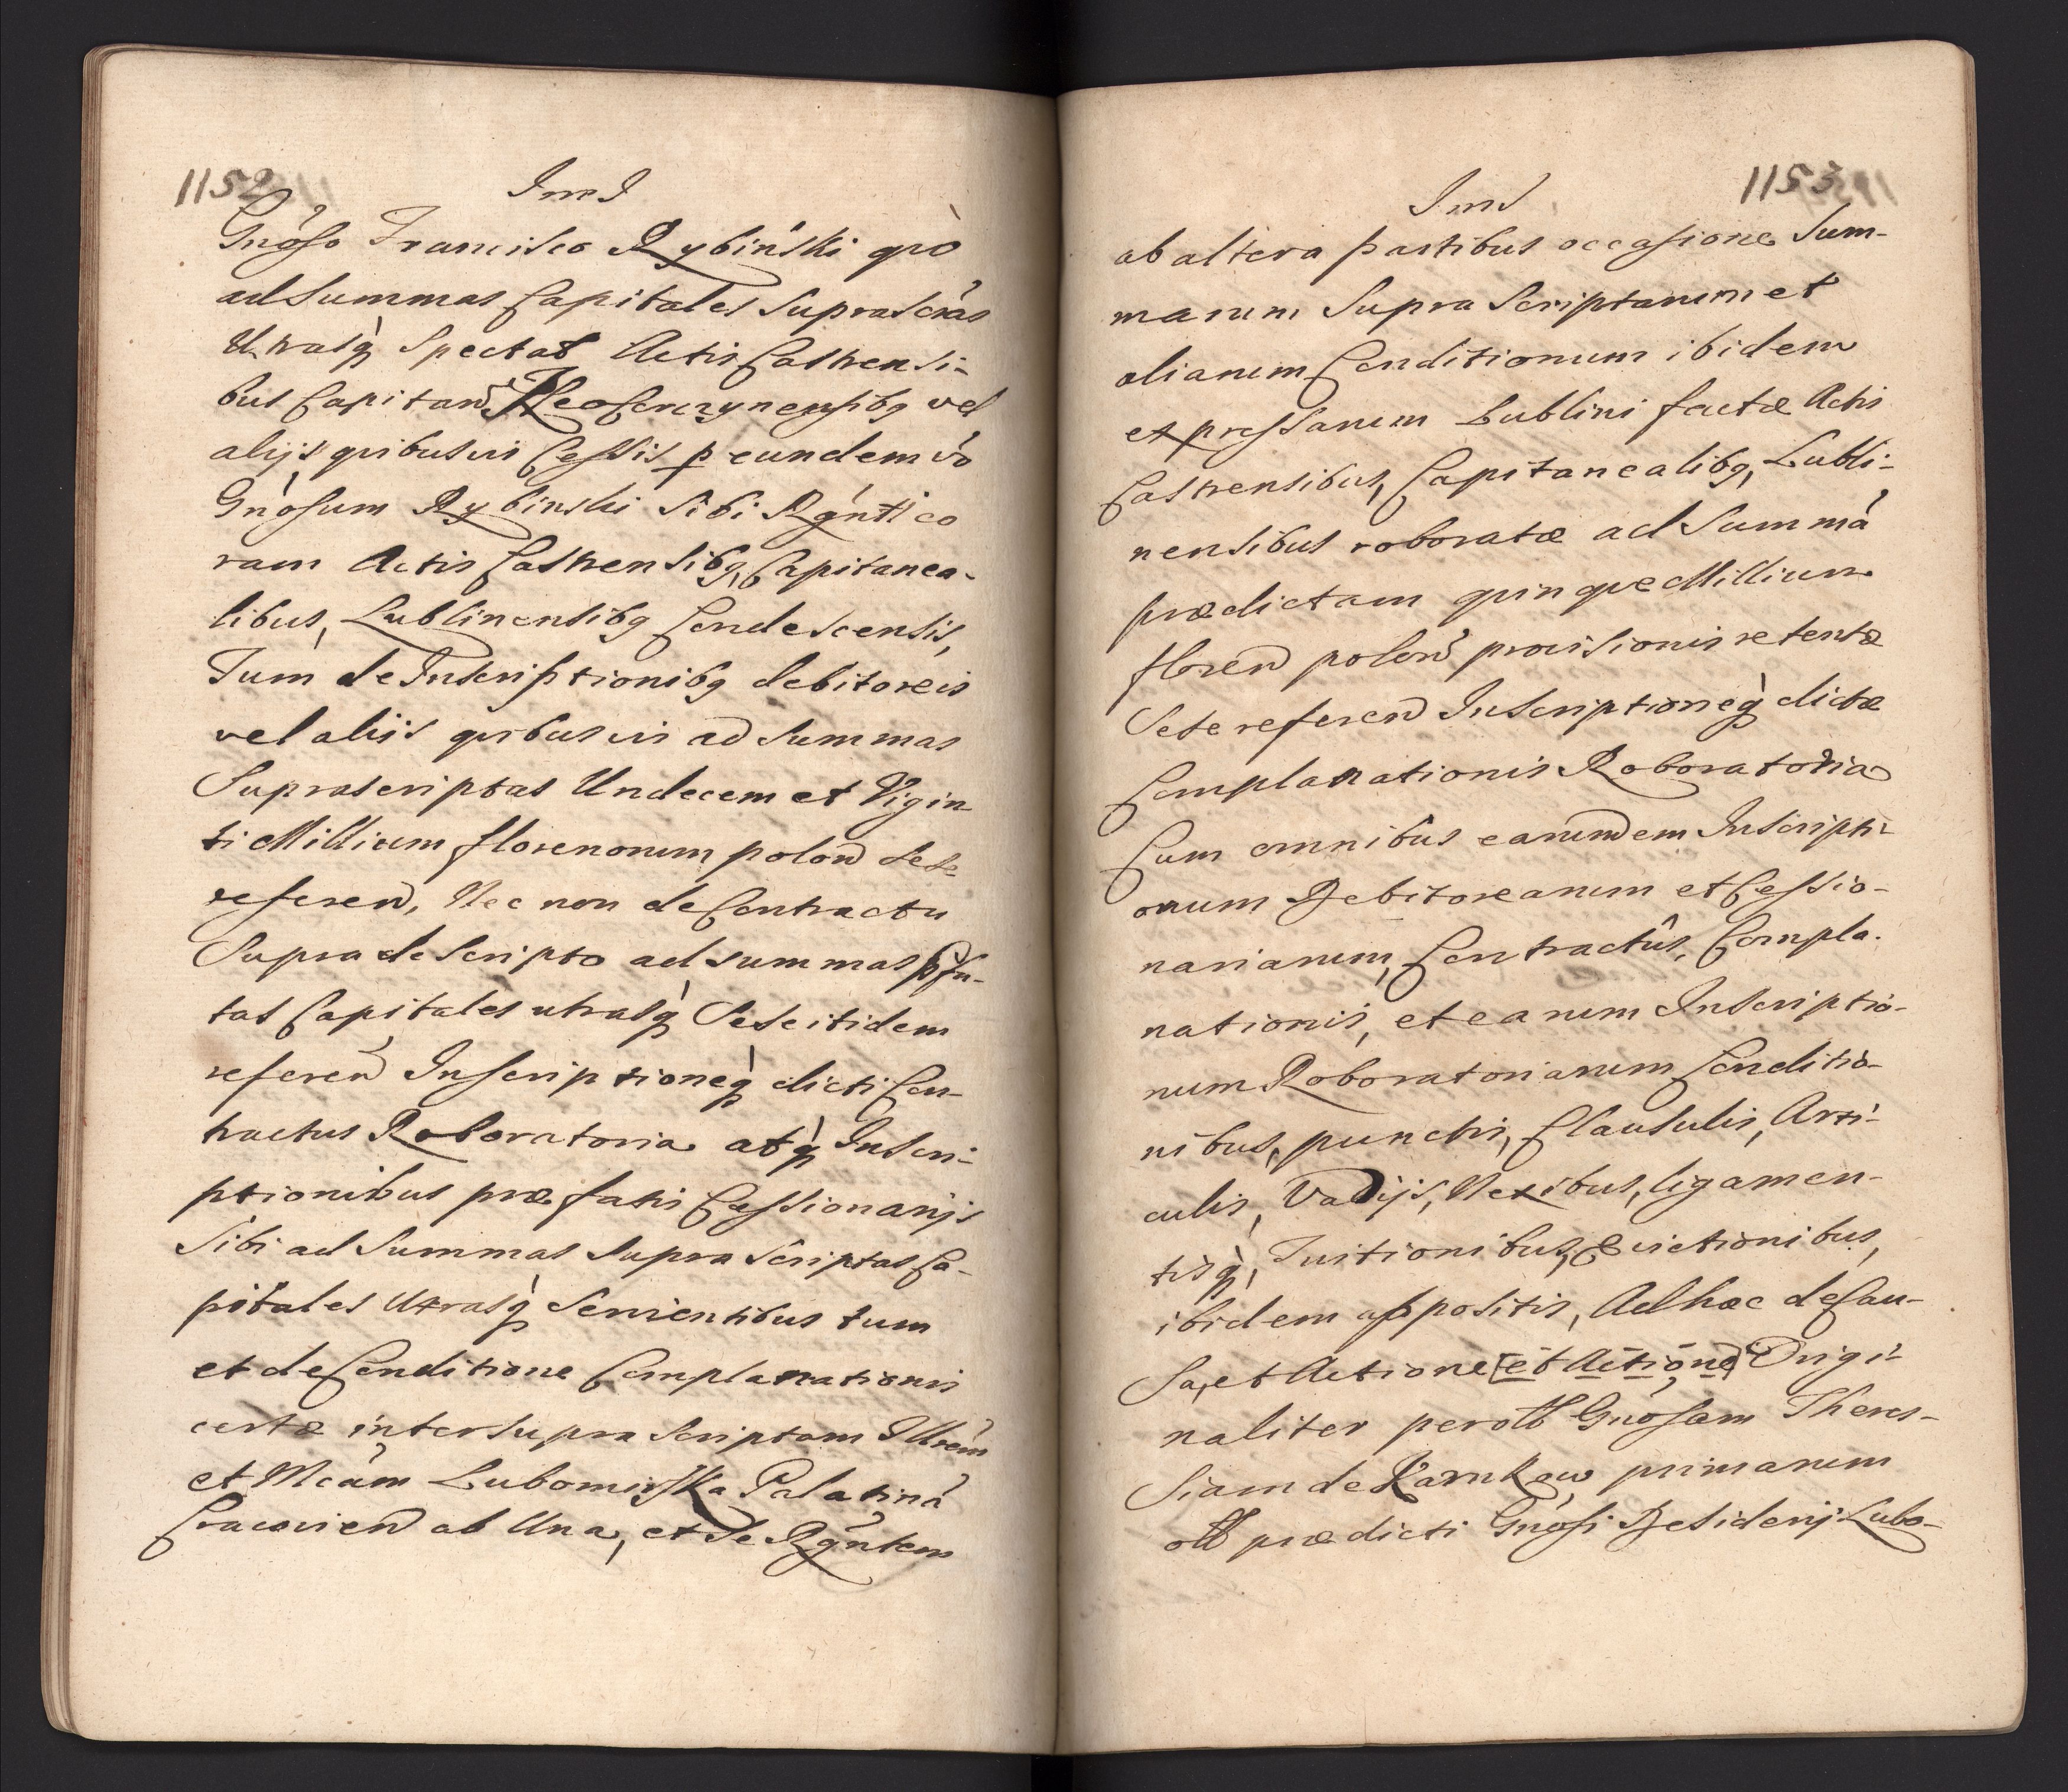 1152
ImJ
Gnoso Francisco Rybinski qvo
ad Summas Capitales Suprascras
Utrasq Spectat Actis Castrensi-
bus Capitan Neocorczynensibq vel
alijs qvibusvis Cessis p eundem vo
Gnosum Rybinski Sibi Rgnti co
ram Actis Castrensibq, Capitanea-
libus, Lublinensibq Condescensis,
Tum de Inscriptionibq debitoreis
vel aliis qvibusvis ad Summas
Suprascriptas Undecem et Vigin
ti Millium florenorum polon sese
referen, Nec non de Contractu
Supra descripto ad summas psn-
tas Capitales utrasq Sese itidem
referen Inscriptioneq dicti Con-
tractus Roboratoria atq Inscri-
ptionibus præfatis Cessionarijs
Sibi ad Summas Supra Scriptas Ca-
pitales Utrasq Servientibus tum
et de Conditione Complanationis
certæ inter Supra Scriptam Illrem
et Mcam Lubomirska Palatina
Cracovien ab Una, et Se Rgntem
1153
ImJ
ab altera partibus occasione Sum-
marum Supra Scriptarum et
aliarum Conditionum ibidem
expressarum Lublini factæ Actis
Castrensibus, Capitanealibq, Lubli-
nensibus roboratæ ad Summa
prædictam qvinqve Millium
floren polon provisionis retentæ
Sese referen Inscriptioneq dictæ
Complanationis Roboratoria
Cum omnibus earundem Inscripti-
onum Debitorearum et Cessio-
nariarum, Contractûs, Compla-
nationis, et earum Inscriptio-
num Roboratoriarum Conditio-
nibus, punctis, Clausulis, Arti-
culis, Vadijs, Nexibus, ligamen-
tisq, Tuitionibus, Evictionibus,
ibidem appositis, Ad hæc de Cau-
sa, et Actione [et Actione] Origi-
naliter per olb Gnosam There-
siam de Karnkow primarum
olb prædicti Gnosi Desiderij Lubo-